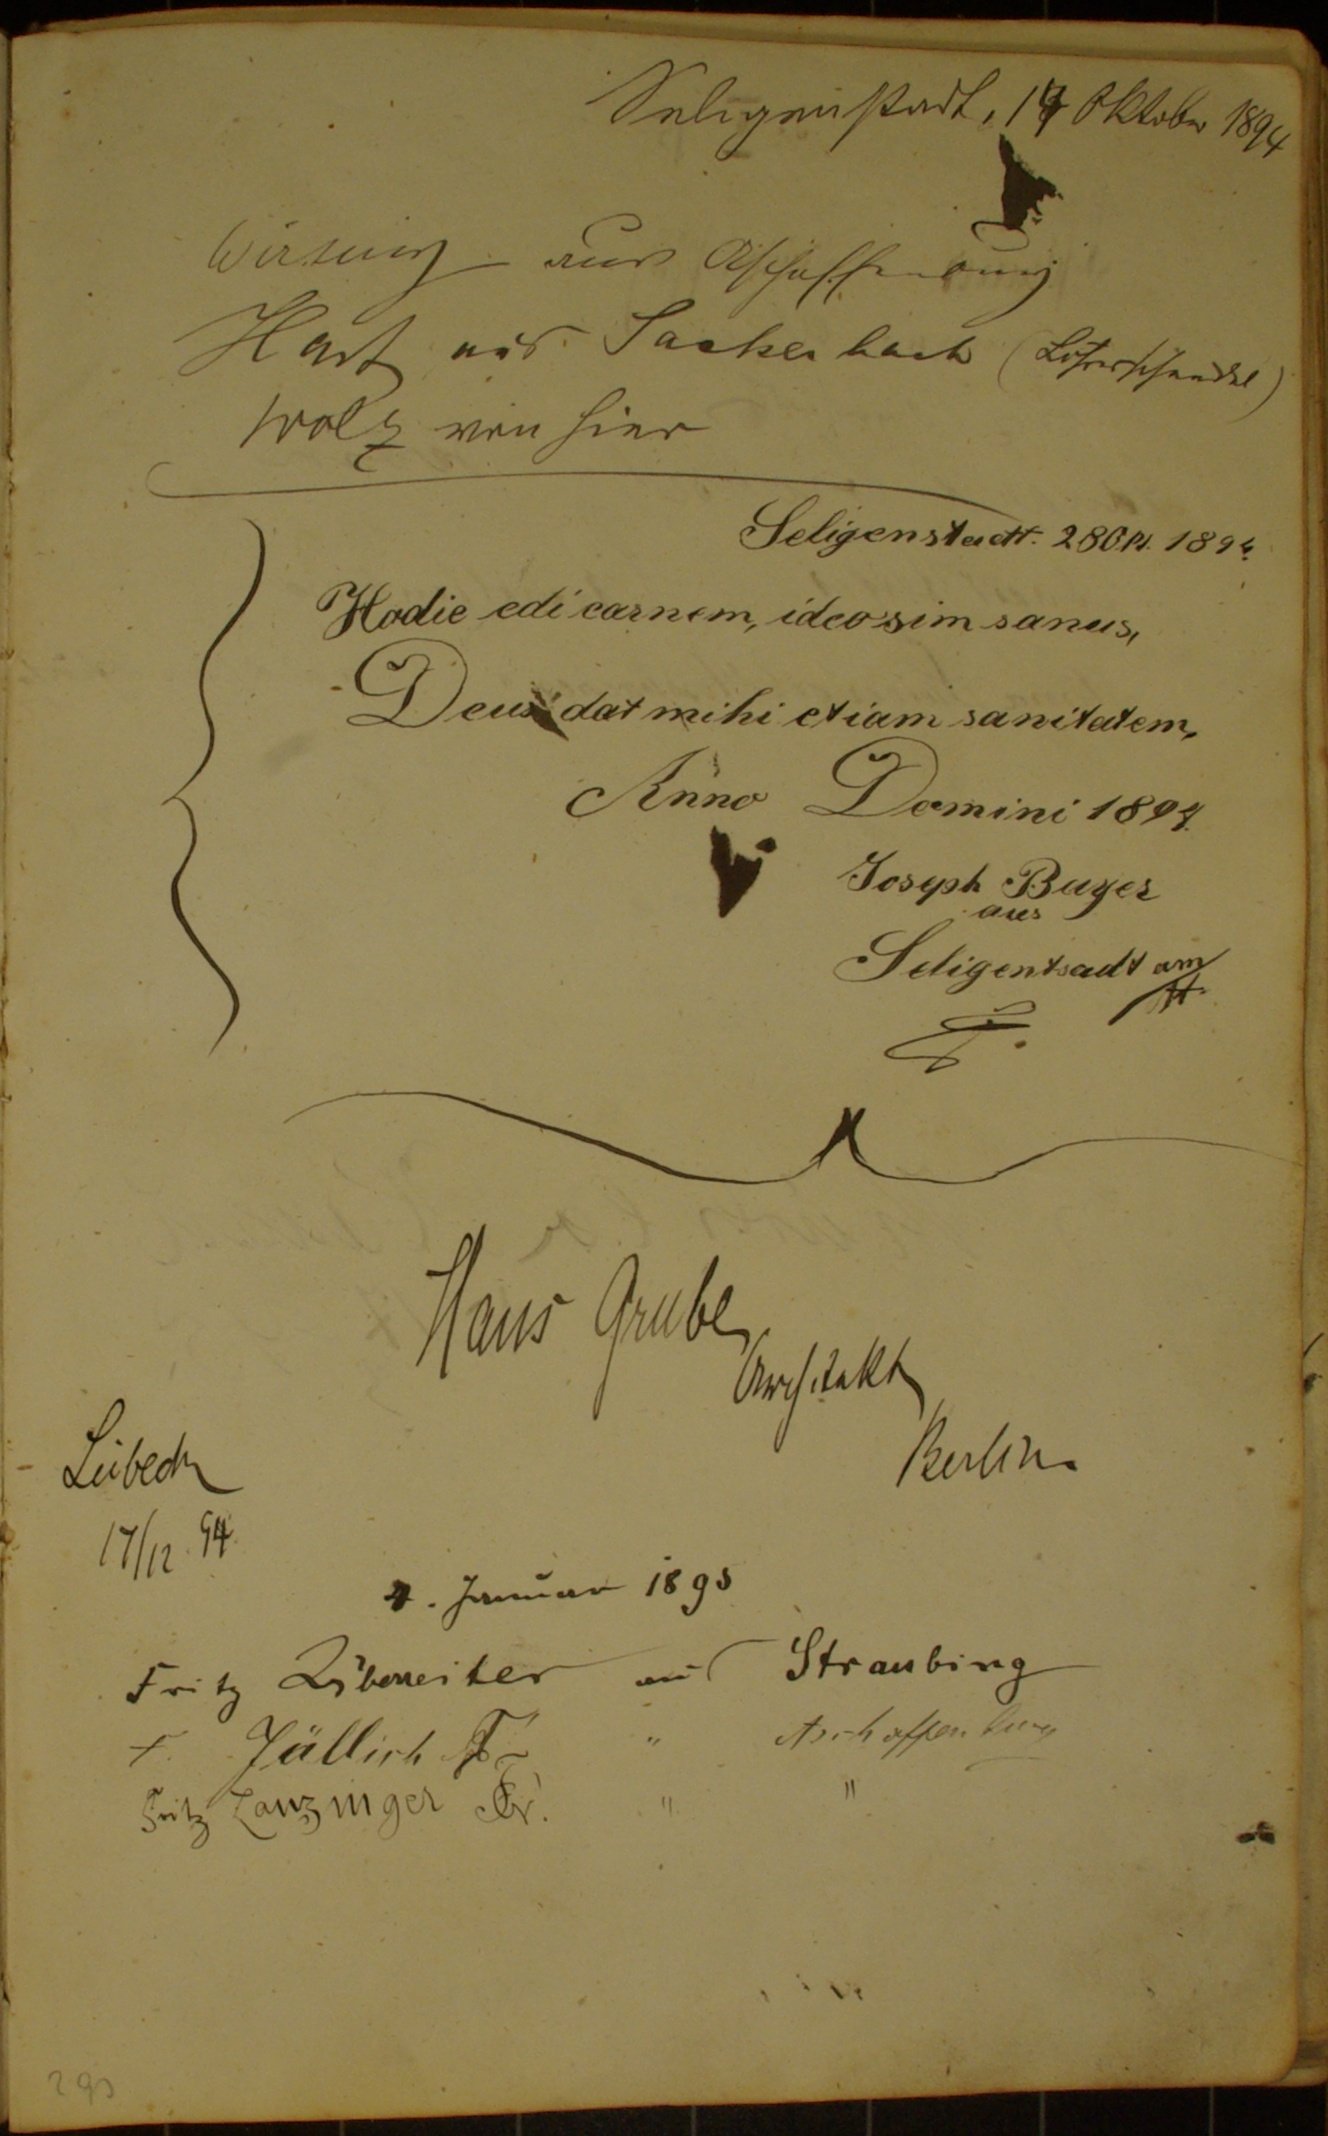 Seligenstadt, 14 Oktober 1894
aus Aschaffenburg
Hart aus Sackenbach
Wolz von hier
Seligenstadt. 28 Okt. 1894.
Hodie edi carnem, ideo sim sanus,
Deus dat mihi etiam sanitatem,
Anno Domini 1894.
Joseph Bayer
aus
Seligentsadt am
M.
Hans Grube,
Architekt,
Berlin.
Lübeck
17/12 94.
4. Januar 1895
Fritz aus Straubing
F. Jüllich " Aschaffenburg
Fritz Lanzinger Fr. " "
295